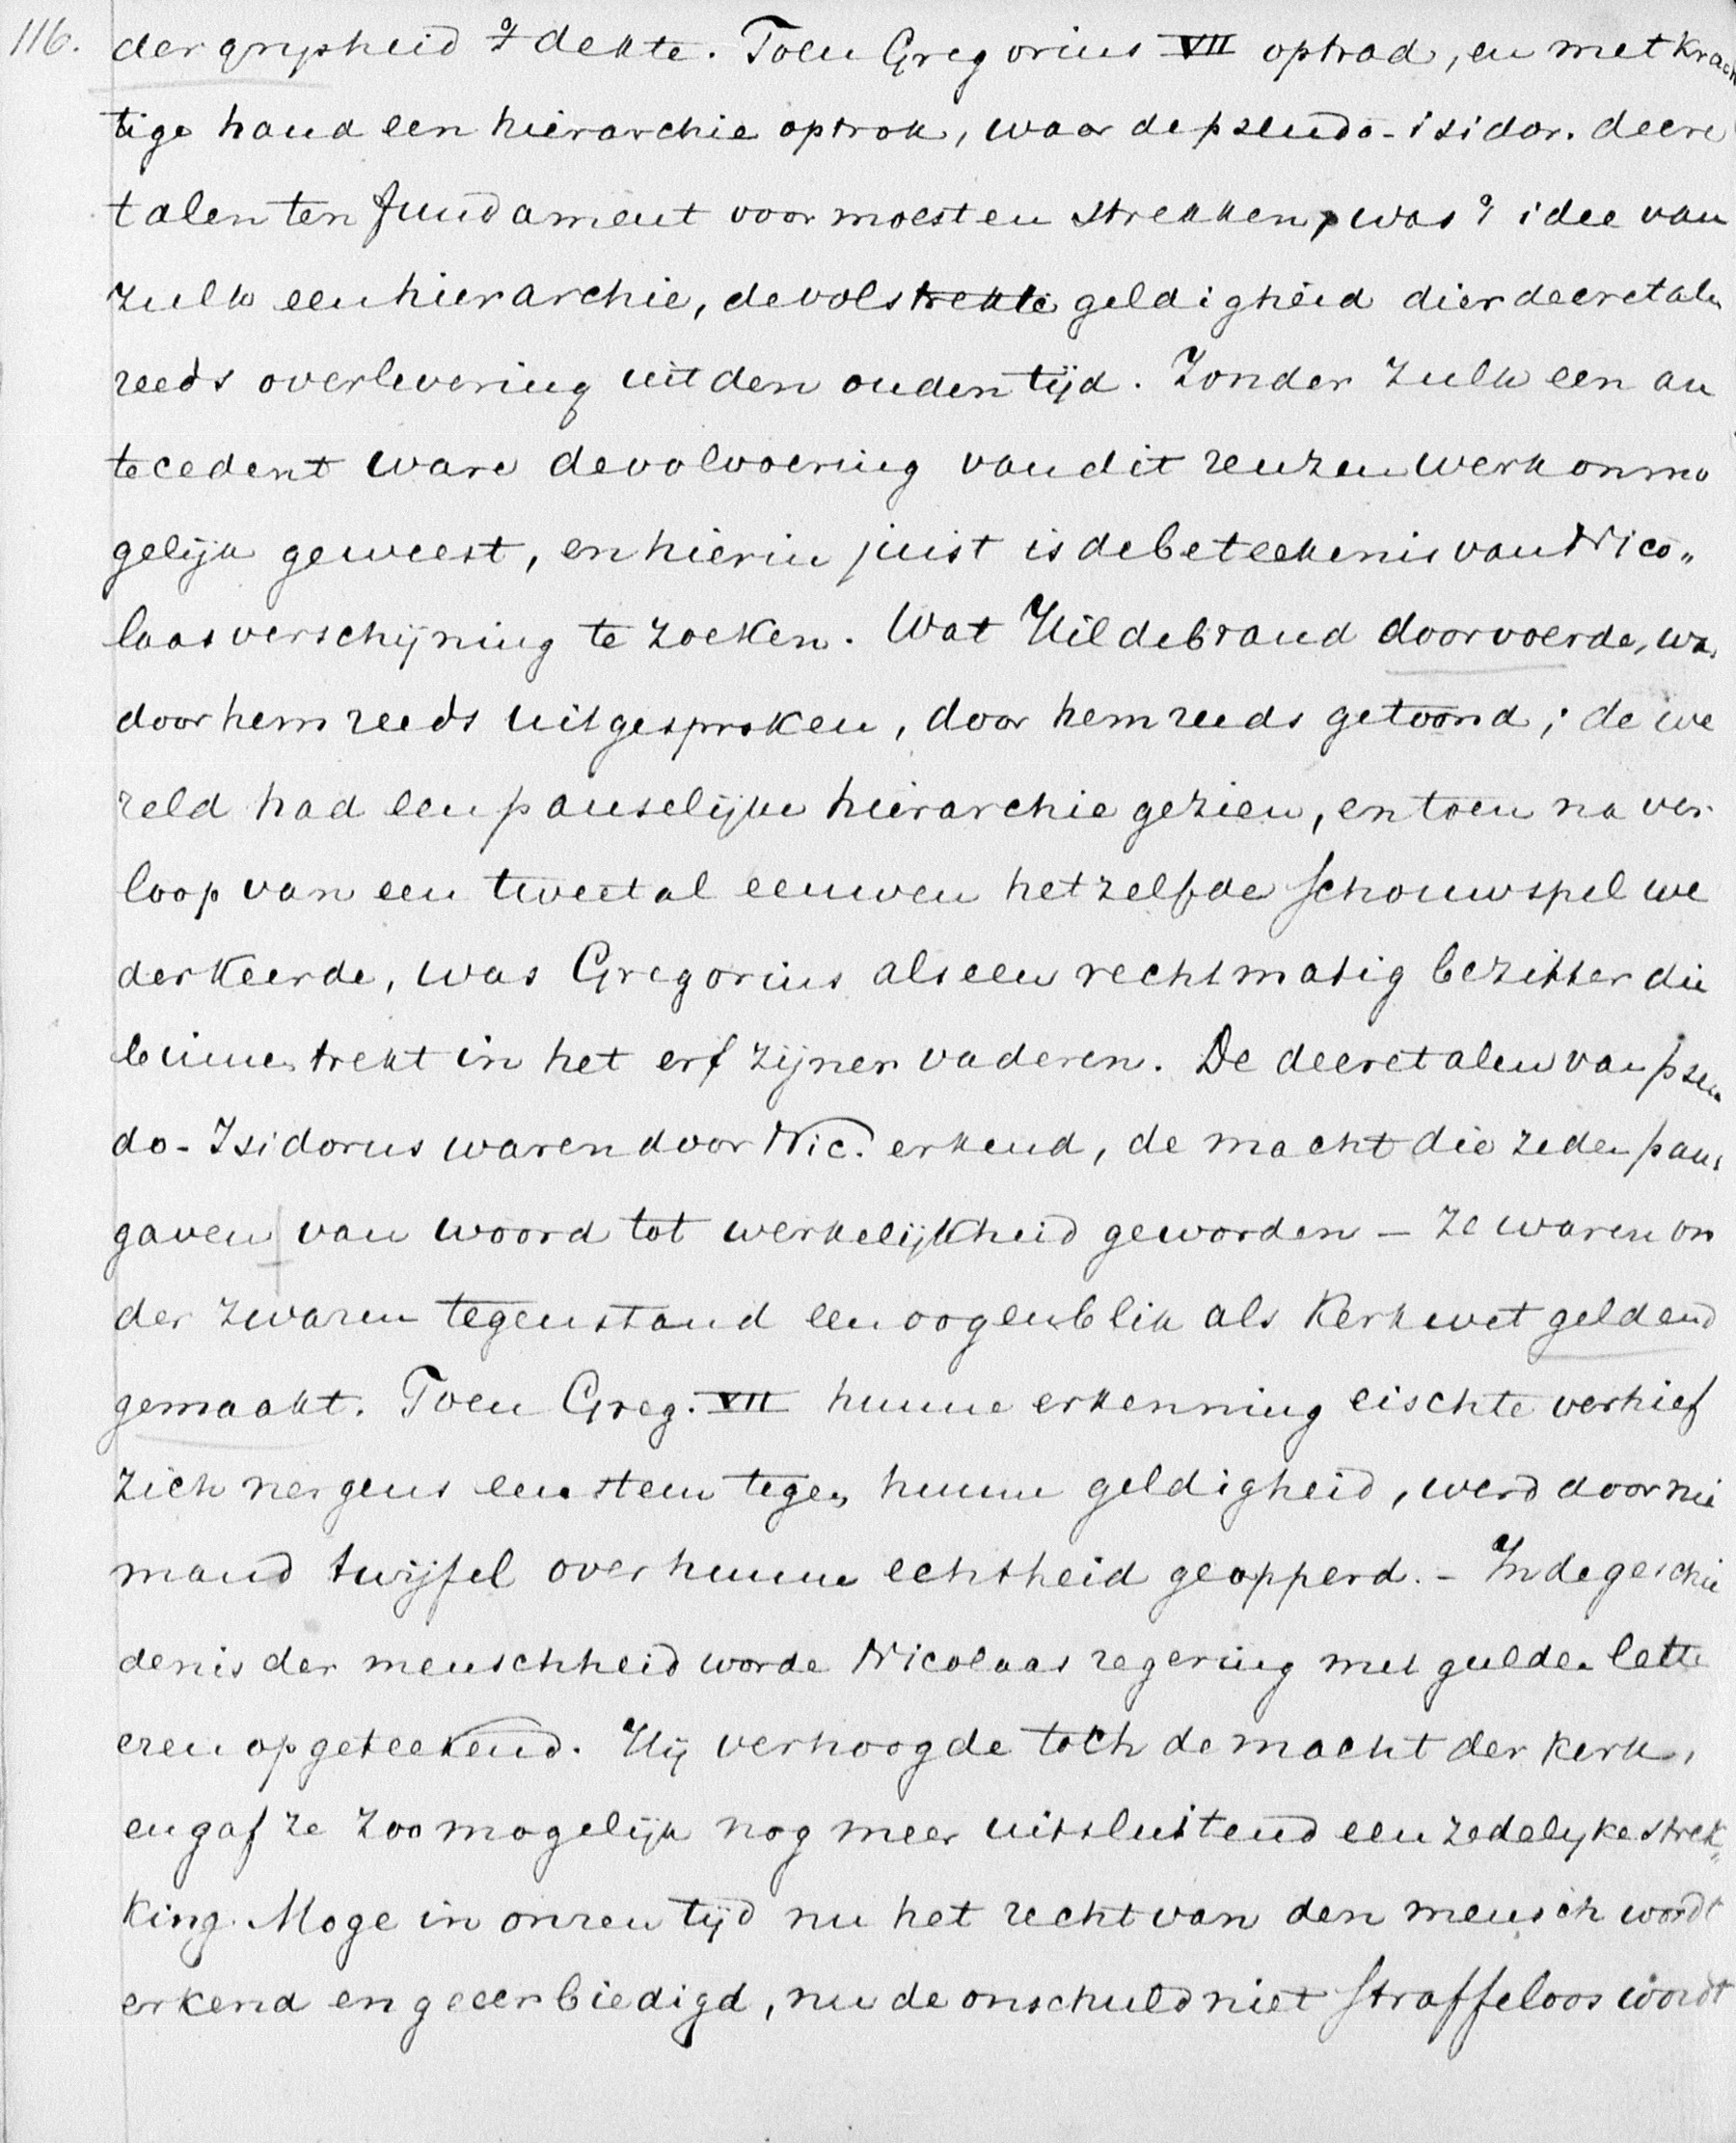 116. der grijsheid 't dekte. Toen Gregorius VII optrad, en met krach
tige hand een hierarchie optrok, waar de pseudo-isidor. decre
talen ten fundament voor moesten strekken, was 't idee van
zulk een hierarchie, de volstrekte geldigheid dier decretalen
reeds overlevering uit den ouden tijd. Zonder zulk een an
tecedent ware de volvoering van dit reuzenwerk onmo
gelijk geweest, en hierin juist is de beteekenis van Nico„
laas verschijning te zoeken. Wat Hildebrand doorvoerde, was
door hem reeds uitgesproken, door hem reeds getoond; de we
reld had een pauselijke hierarchie gezien, en toen na ver
loop van een tweetal eeuwen hetzelfde schouwspel we
derkeerde, was Gregorius als een rechtmatig bezitter die
binnen trekt in het erf zijner vaderen. De decretalen van pseu
do-Isidorus waren door Nic. erkend, de macht die ze den paus
gaven van woord tot werkelijkheid geworden - ze waren on
der zwaren tegenstand een oogenblik als Kerkwet geldend
gemaakt. Toen Greg. VII hunne erkenning eischte verhief
zich nergens een stem tegen hunne geldigheid, werd door nie
mand twijfel over hunne echtheid geopperd. - In de geschie
denis der menschheid worde Nicolaas regering met gulden lette
eren opgeteekend. Hij verhoogde toch de macht der kerk,
en gaf ze zoo mogelijk nog meer uitsluitend een zedelyke strek„
king. Moge in onzen tijd nu het recht van den mensch wordt
erkend en geeerbiedigd, nu de onschuld niet straffeloos wordt